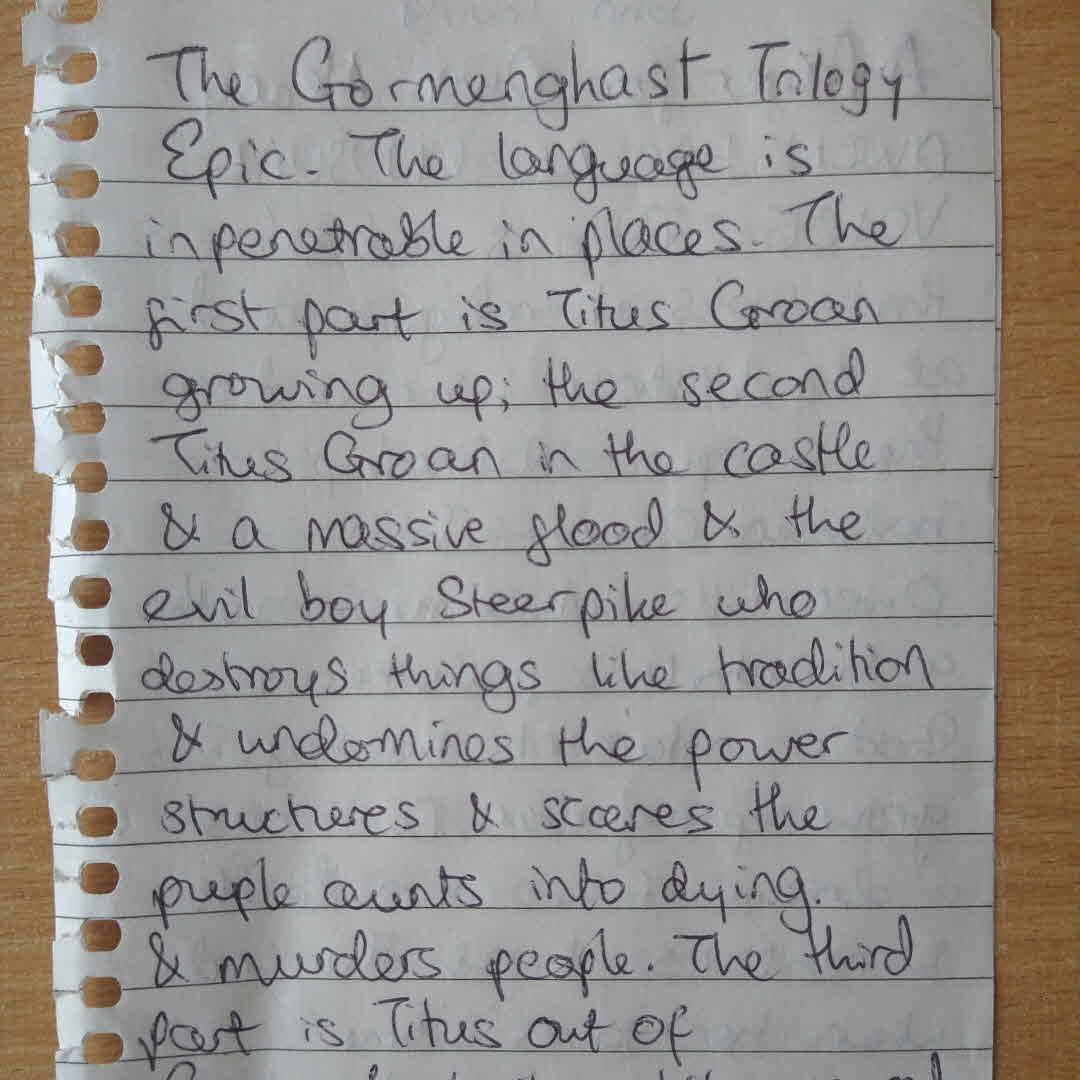 The Gormenghast Trilogy
Epic. The language is
inpenetrable in places. The
first part is Titus Groan
growing up; the second
Titus Groan in the castle
& a massive flood & the
evil boy Steerpike who
destroys things like tradition
& undermines the power
structures & scares the
puple aunts into dying.
& murders people. The third
part is Titus out of